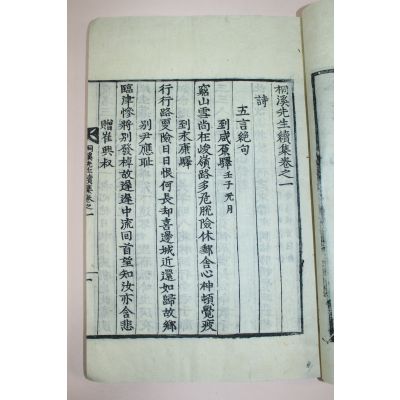 桐溪先生續集卷之一
詩
五言絶句
到咸原驛 壬子元月
窮山雪尚在峻嶺路多危脫險休郵舍心神頓覺疲
到永康驛
行行路更險日日恨何長却喜邊城近還如歸故鄉
別尹應耻
臨岸慘將別發棹故遲遲中流回首望知汝亦含悲
贈崔興叔
桐溪先生續集卷之一
一